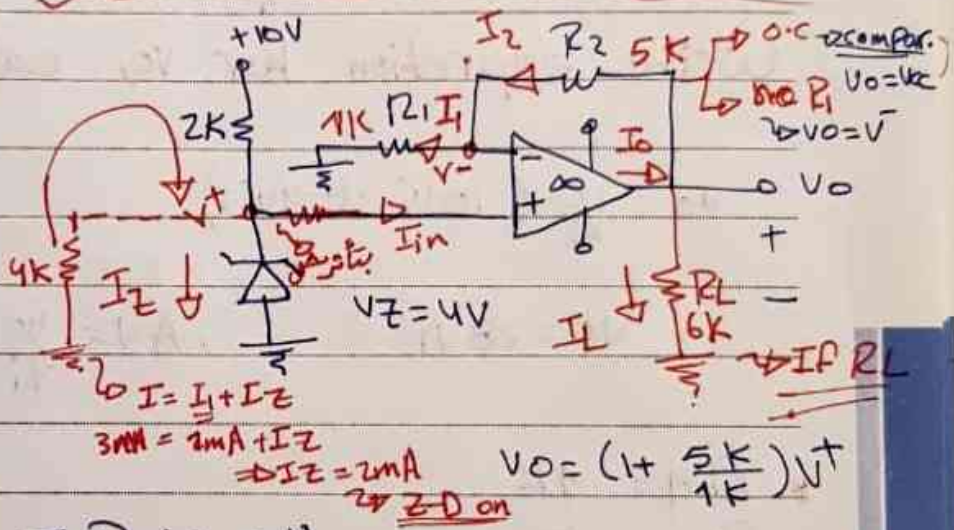 +10V
I2 R2 5K O.C compar.
Vo=Vcc
no R1
Vo=V-
2K 1K R1 I1 V- - ∞ Io Vo
V+ + Iin +
4K IZ VZ=4V IL RL 6K -
If RL
I = I1 + IZ
3mA = 1mA + IZ
⇒ IZ = 2mA
Z-D on
Vo = (1+ 5K/1K) V+